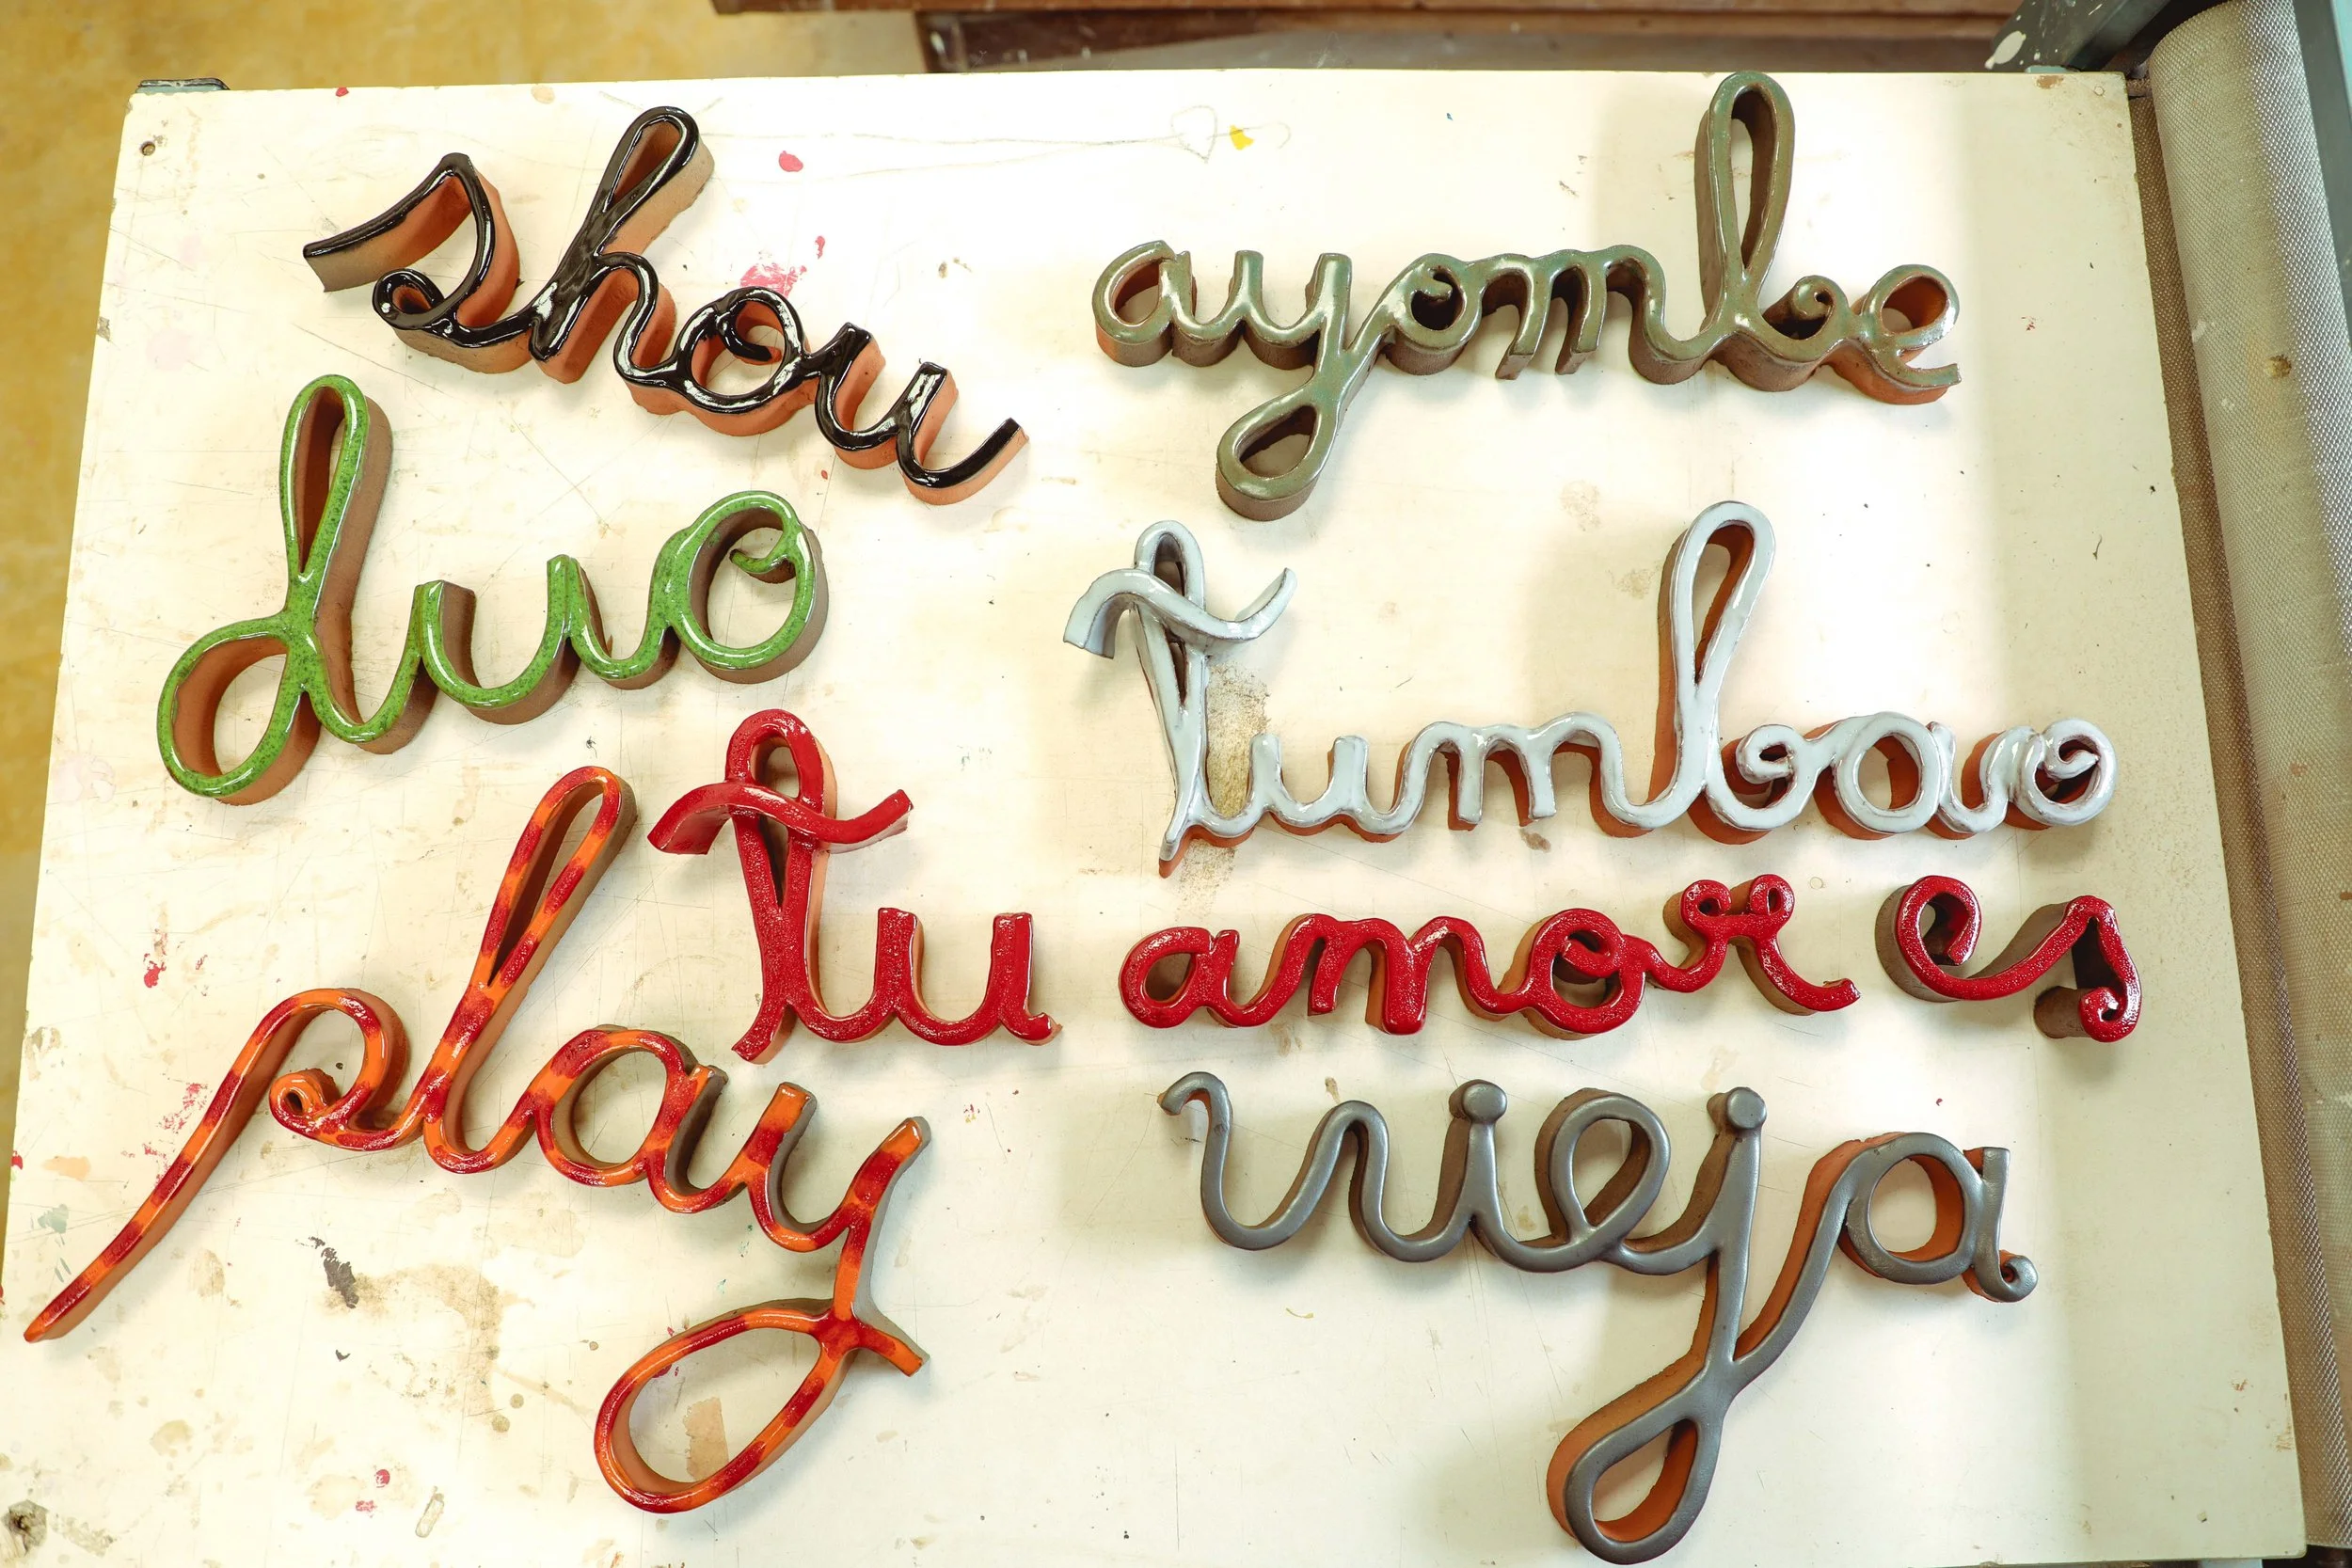 show
ayombe
duo
tumbao
tu amor es
play
vieja